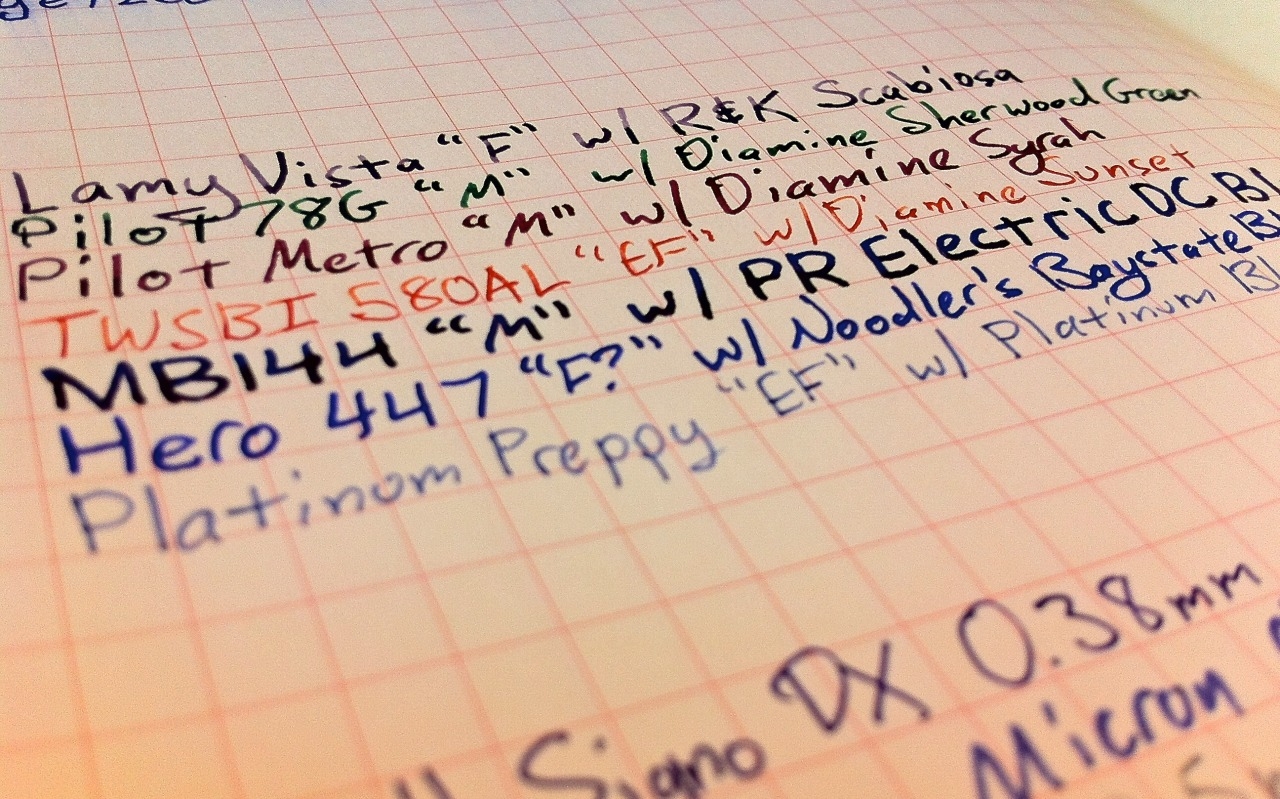 Lamy Vista "F" w/ R&K Scabiosa
Pilot 78G "M" w/ Diamine Sherwood Green
Pilot Metro "M" w/ Diamine Syrah
TWSBI 580AL "EF" w/ Diamine Sunset
MB144 "M" w/ PR Electric DC Bl
Hero 447 "F?" w/ Noodler's Baystate Bl
Platinum Preppy "EF" w/ Platinum Bl
Signo DX 0.38mm
Micron